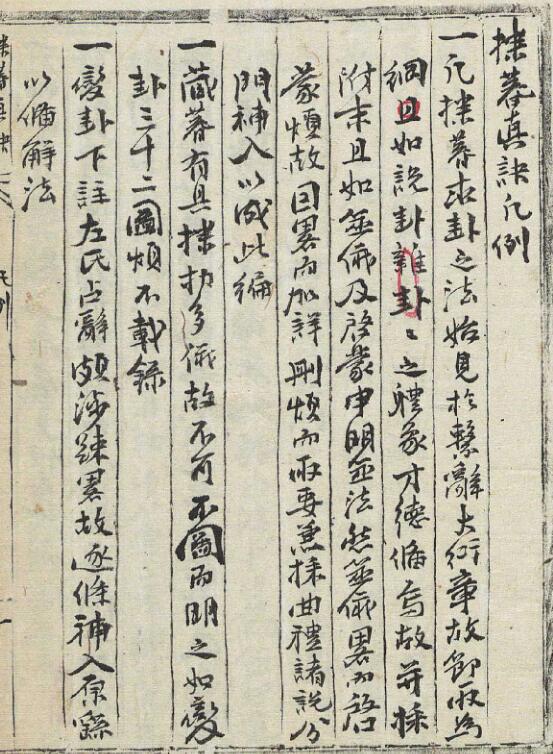 揲蓍真訣凡例
一凡揲蓍求卦之法始見於繫辭大衍章故節取為
綱且如說卦雜卦〻之軆象才德俻焉故并採
附末且如筮儀及啓蒙申明筮法然筮儀畧而啓
蒙煩故因畧而加詳刪煩而取要兼採曲禮諸說分
門補入以成此編
一蔵蓍有具揲扐多儀故不可不圖而明之如變
卦三十二圖煩不載錄
一變卦下註左氏占辭頗涉踈畧故逐條補入原繇
以俻解法
揲蓍真訣
凡例
一